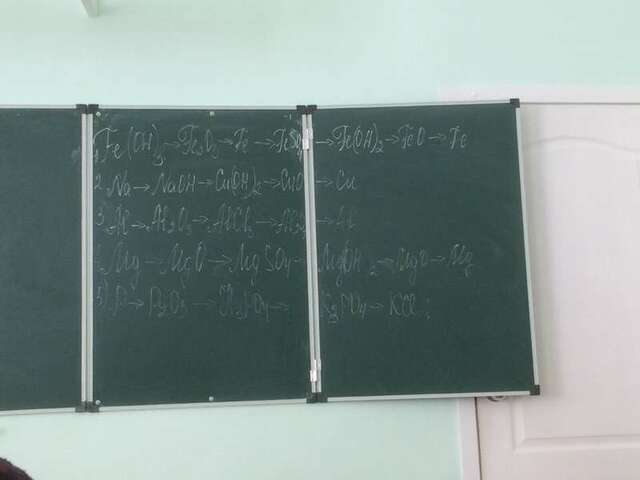 1. Fe(OH)3→Fe2O3→Fe→FeSO4→Fe(OH)2→FeO→Fe
2. Na→NaOH→Cu(OH)2→CuO→Cu
3) Al→Al2O3→AlCl3→Al2O3→Al
Mg→MgO→MgSO4→Mg(OH)2→MgO→Mg
5) P→P2O5→H3PO4→K3PO4→KCl